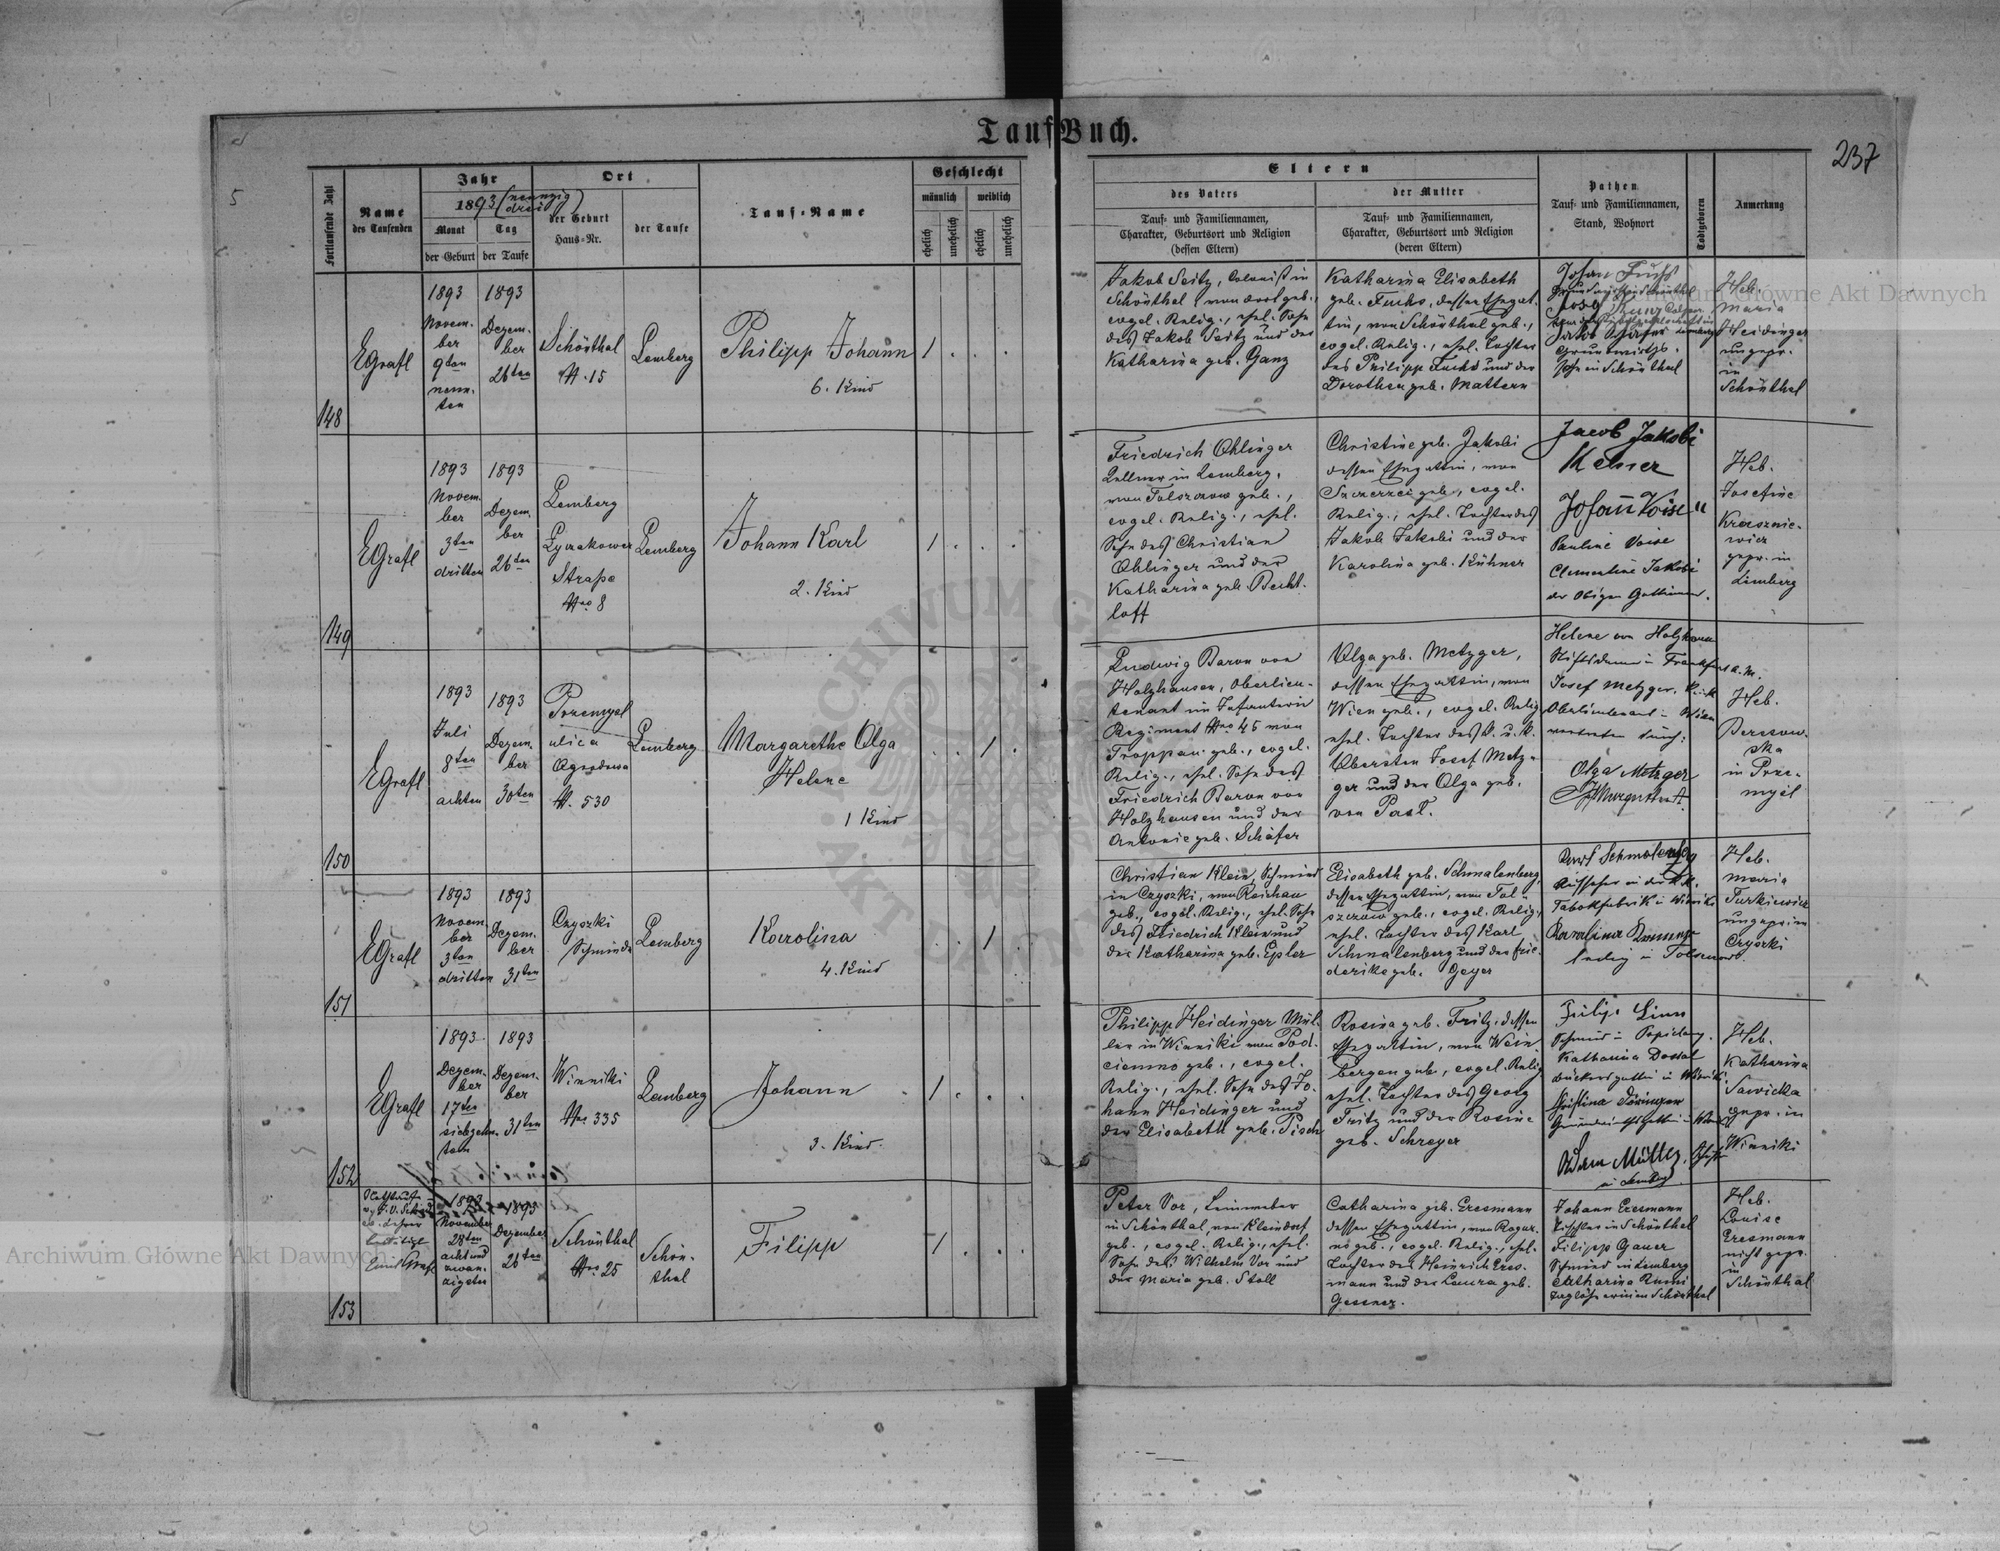 Tauf Buch.
237
Fortlaufende Zahl
Name
des Taufenden
Jahr
1893 (neunzig
drei)
Monat
Tag
der Geburt
der Taufe
Ort
der Geburt
Haus=Nr.
der Taufe
Tauf=Name
Geschlecht
männlich
weiblich
ehelich
unehelich
ehelich
unehelich
Eltern
des Vaters
Tauf= und Familiennamen,
Charakter, Geburtsort und Religion
(dessen Eltern)
der Mutter
Tauf= und Familiennamen,
Charakter, Geburtsort und Religion
(deren Eltern)
Pathen
Tauf= und Familiennamen,
Stand, Wohnort
Todtgeboren
Anmerkung
148
EGrafl
1893
Novem-
ber
9ten
neun-
ten
1893
Dezem-
ber
26ten
Schönthal
N. 15
Lemberg
Philipp Johann
6. Kind
1
Jakob Seitz, Colonist in
Schönthal, von dort geb.,
evgel. Relig., ehel. Sohn
des Jakob Seitz und der
Katharina geb. Ganz
Katharina Elisabeth
geb. Fuchs, dessen Ehegat-
tin, von Schönthal geb.,
evgel. Relig., ehel. Tochter
des Philipp Fuchs und der
Dorothea geb. Mattern
Johan Fuchs
Jakob Schäfer
Grundwirths-
sohn in Schönthal
Heb.
Maria
Heidinger
ungepr.
in
Schönthal
149
EGrafl
1893
Novem-
ber
3ten
dritten
1893
Dezem-
ber
26ten
Lemberg
Lyczakower
Straße
Nro 8
Lemberg
Johann Karl
2. Kind
1
Friedrich Ohlinger
Kellner in Lemberg,
von Tolszczow geb.,
evgel. Relig., ehel.
Sohn des Christian
Ohlinger und der
Katharina geb. Becht-
loff
Christine geb. Jakobi
dessen Ehegattin, von
geb., evgel.
Relig., ehel. Tochter des
Jakob Jakobi und der
Karolina geb. Kühner
Jacob Jakobi
Kelner
Johann Voise
Pauline Voise
Clementine Jakobi
der Obigen Gattinnen.
Heb.
Josefine
Krasznie-
wicz
gepr. in
Lemberg
150
EGrafl
1893
Juli
8ten
achten
1893
Dezem-
ber
30ten
Przemysl
ulica
Ogrodowa
N. 530
Lemberg
Margarethe Olga
Helene
1 Kind
1
Ludwig Baron von
Holzhausen, Oberlieu-
tenant im Infanterie
Regiment Nro 45 von
Troppau geb., evgel.
Relig., ehel. Sohn des
Friedrich Baron von
Holzhausen und der
Antonie geb. Schäfer
Olga geb. Metzger,
dessen Ehegattin, von
Wien geb., evgel. Relig.
ehel. Tochter des k. u. k.
Obersten Josef Metz-
ger und der Olga geb.
von Past.
Helene von Holzhausen
Stiftsdame in Frankfurt a. M.
Josef Metzger, k. u. k.
Oberlieutenant in Wien
vertreten durch:
Olga Metzger
Heb.
Berezow-
ska
in Prze-
mysl
151
EGrafl
1893
Novem-
ber
3ten
dritten
1893
Dezem-
ber
31ten
Czyszki
Schmiede
Lemberg
Karolina
4. Kind
1
Christian Klein, Schmied
in Czyszki, von Reichau
geb., evgel. Relig., ehel. Sohn
des Friedrich Klein und
der Katharina geb. Epler
Elisabeth geb. Schmalenberg,
dessen Ehegattin, von Tol-
szczow geb., evgel. Relig.,
ehel. Tochter des Karl
Schmalenberg und der Frie-
derike geb. Geyer
Karl Schmalenberg
Aufseher in der k.k.
Tabakfabrik in Winniki
Karolina
ledig in
Heb.
Maria
Turkiewicz
ungepr. in
Czyszki
152
EGrafl
1893
Dezem-
ber
17ten
siebzehn-
ten
1893
Dezem-
ber
31ten
Winniki
Nro 335
Lemberg
Johann
3. Kind.
1
Philipp Heidinger Mül-
ler in Winniki von Pod-
ciemno geb., evgel.
Relig., ehel. Sohn des Jo-
hann Heidinger und
der Elisabeth geb. Pisch
Rosina geb. Fritz, dessen
Ehegattin, von Wein-
bergen geb., evgel. Relig.
ehel. Tochter des Georg
Fritz und der Rosine
geb. Schreyer
Filip Linn
Schmied in
Katharina Dostal
Bäckersgattin in Winniki
Adam Müller
in Lemberg
Heb.
Katharina
Sawicka
gepr. in
Winniki
153
Emil Grafl
1893
November
28ten
acht und
zwan-
zigsten
1893
Dezember
26ten
Schönthal
Nro 25
Schön-
thal
Filipp
1
Peter Vor, Leinweber
in Schönthal, von Kleindorf
geb., evgel. Relig., ehel.
Sohn des Wilhelm Vor und
der Maria geb. Stoll
Catharina geb. Eresmann
dessen Ehegattin, von
geb., evgel. Relig., ehel.
Tochter des Heinrich Eres-
mann und der Laura geb.
Gessner.
Johann Eresmann
Tischler in Schönthal
Filipp Gauer
Schmied in Lemberg
Catharina
Taglöhnerin in Schönthal
Heb.
Louise
Eresmann
nicht gepr.
in
Schönthal
Archiwum Główne Akt Dawnych
Archiwum Główne Akt Dawnych